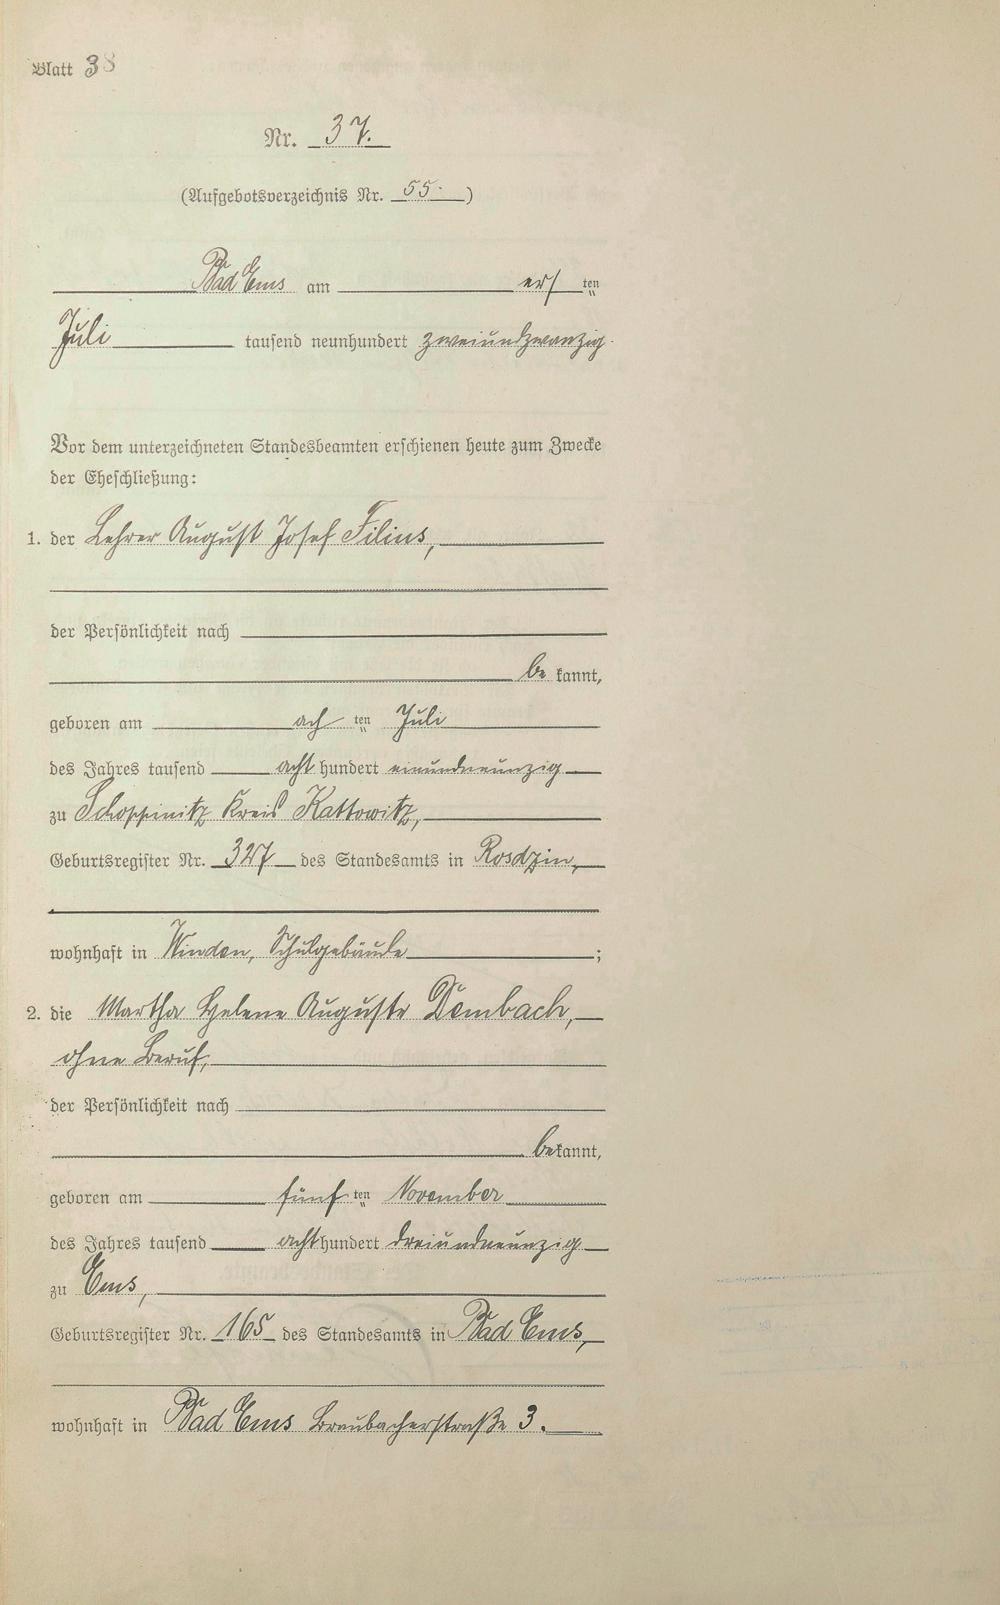 Blatt 38
Nr. 37.
(Aufgebotsverzeichnis Nr. 55.)
Bad Ems am ersten
Juli tausend neunhundert zweiundzwanzig.
Vor dem unterzeichneten Standesbeamten erschienen heute zum Zwecke
der Eheschließung:
1. der Lehrer August Josef Filius,
der Persönlichkeit nach
bekannt,
geboren am achten Juli
des Jahres tausend acht hundert einundneunzig
zu Schoppinitz Kreis Kattowitz,
Geburtsregister Nr. 327 des Standesamts in Rosdzin,
wohnhaft in Winden, Schulgebäude;
2. die Martha Helene Auguste Dembach,
ohne Beruf,
der Persönlichkeit nach
bekannt,
geboren am fünften November
des Jahres tausend acht hundert dreiundneunzig
zu Ems,
Geburtsregister Nr. 165 des Standesamts in Bad Ems,
wohnhaft in Bad Ems Braubacherstraße 3.